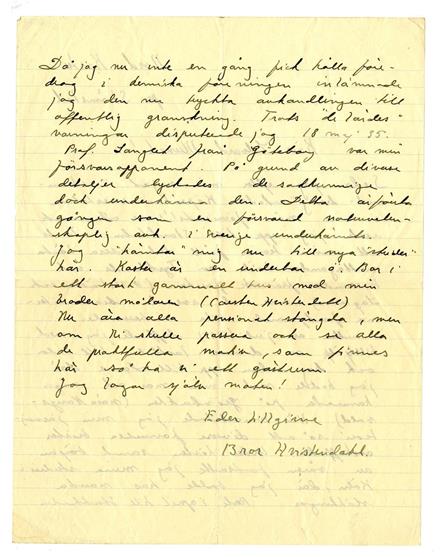 Då jag nu inte en gång fick hålla före-
drag i kemiska föreningen inlämnade
jag den nu tryckta avhandlingen till
offentlig granskning. Trots "de lärdes"
varningar disputerade jag 18 maj 35.
Prof. Langlet från Göteborg var min
försvarsopponent. På grund av diverse
detaljer lyckades de sakkunniga
dock underkänna den. Detta är första
gången som en försvarad naturveten-
skaplig avh. i Sverige underkänts.
Jag "hämtar" mig nu till nya "studier"
här. är en underbar ö. Bor i
ett stort gammalt hus med min
broder målaren (Gustav Kristendahl)
Nu äro alla pensionat stängda, men
om Ni skulle passera och se alla
de praktfulla som finnes
här så ha vi ett gästrum.
Jag lagar själv maten!
Eder tillgivne
Bror Kristendahl.